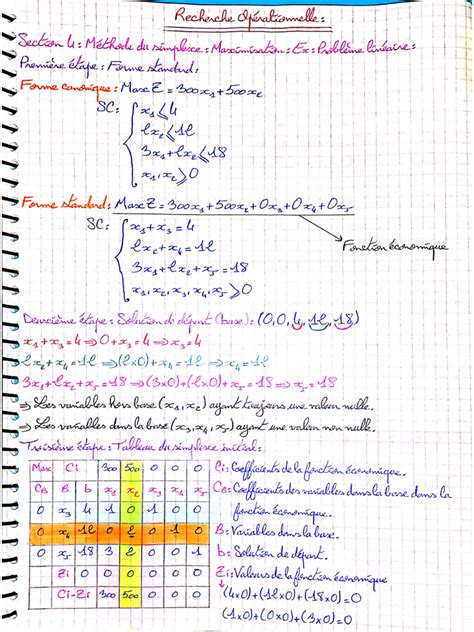 Recherche Opérationnelle :
Section 4 : Méthode du simplexe : Maximisation : Ex : Problème linéaire :
Première étape : Forme standard :
Forme canonique : Max Z = 300x₁ + 500x₂
SC : { x₁ ≤ 4
2x₂ ≤ 12
3x₁ + 2x₂ ≤ 18
x₁, x₂ ≥ 0
Forme standard : Max Z = 300x₁ + 500x₂ + 0x₃ + 0x₄ + 0x₅
SC : { x₁ + x₃ = 4
Fonction économique
2x₂ + x₄ = 12
3x₁ + 2x₂ + x₅ = 18
x₁, x₂, x₃, x₄, x₅ ≥ 0
Deuxième étape : Solution de départ (base) : (0,0, 4, 12, 18)
x₁ + x₃ = 4 ⇒ 0 + x₃ = 4 ⇒ x₃ = 4
2x₂ + x₄ = 12 ⇒ (2x0) + x₄ = 12 ⇒ x₄ = 12
3x₁ + 2x₂ + x₅ = 18 ⇒ (3x0) + (2x0) + x₅ = 18 ⇒ x₅ = 18
⇒ Les variables hors base (x₁, x₂) ayant toujours une valeur nulle.
⇒ Les variables dans la base (x₃, x₄, x₅) ayant une valeur non nulle.
Troisième étape : Tableau du simplexe initial :
Max Ci 300 500 0 0 0
CB B b x₁ x₂ x₃ x₄ x₅
0 x₃ 4 1 0 1 0 0
0 x₄ 12 0 2 0 1 0
0 x₅ 18 3 2 0 0 1
Zi 0 0 0 0 0 0
Ci-Zi 300 500 0 0 0
Ci : Coefficients de la fonction économique.
CB : Coefficients des variables dans la base dans la
fonction économique.
B : Variables dans la base.
b : Solution de départ.
Zi : Valeurs de la fonction économique
(4x0) + (12x0) + (18x0) = 0
(1x0) + (0x0) + (3x0) = 0